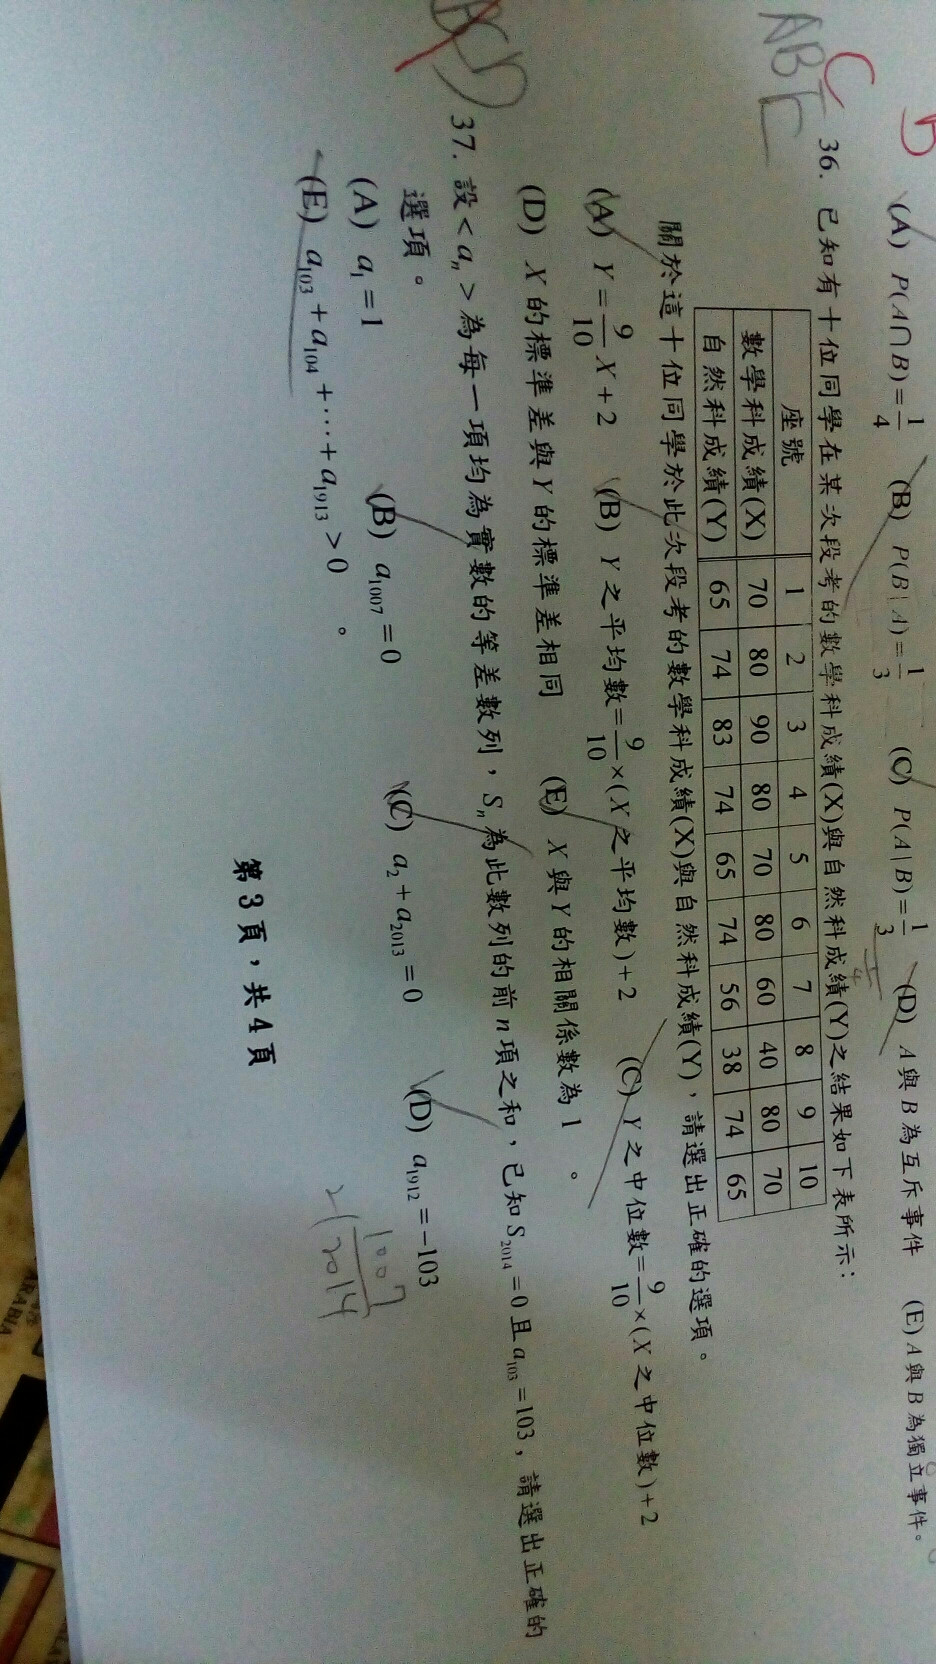 (A) P(A∩B)=1/4 (B) P(B|A)=1/3 (C) P(A|B)=1/3 (D) A與B為互斥事件 (E) A與B為獨立事件。
C
ABE
36. 已知有十位同學在某次段考的數學科成績(X)與自然科成績(Y)之結果如下表所示：
座號 1 2 3 4 5 6 7 8 9 10
數學科成績(X) 70 80 90 80 70 80 60 40 80 70
自然科成績(Y) 65 74 83 74 65 74 56 38 74 65
關於這十位同學於此次段考的數學科成績(X)與自然科成績(Y)，請選出正確的選項。
(A) Y=9/10X+2 (B) Y之平均數=9/10×(X之平均數)+2 (C) Y之中位數=9/10×(X之中位數)+2
(D) X的標準差與Y的標準差相同 (E) X與Y的相關係數為1。
BCD
37. 設<aₙ>為每一項均為實數的等差數列，Sₙ為此數列的前n項之和，已知S₂₀₁₄=0且a₁₀₃=103，請選出正確的
選項。
(A) a₁=1 (B) a₁₀₀₇=0 (C) a₂+a₂₀₁₃=0 (D) a₁₉₁₂=-103
(E) a₁₀₃+a₁₀₄+⋯+a₁₉₁₃>0。
1007
2 2014
第3頁，共4頁
ARABIA